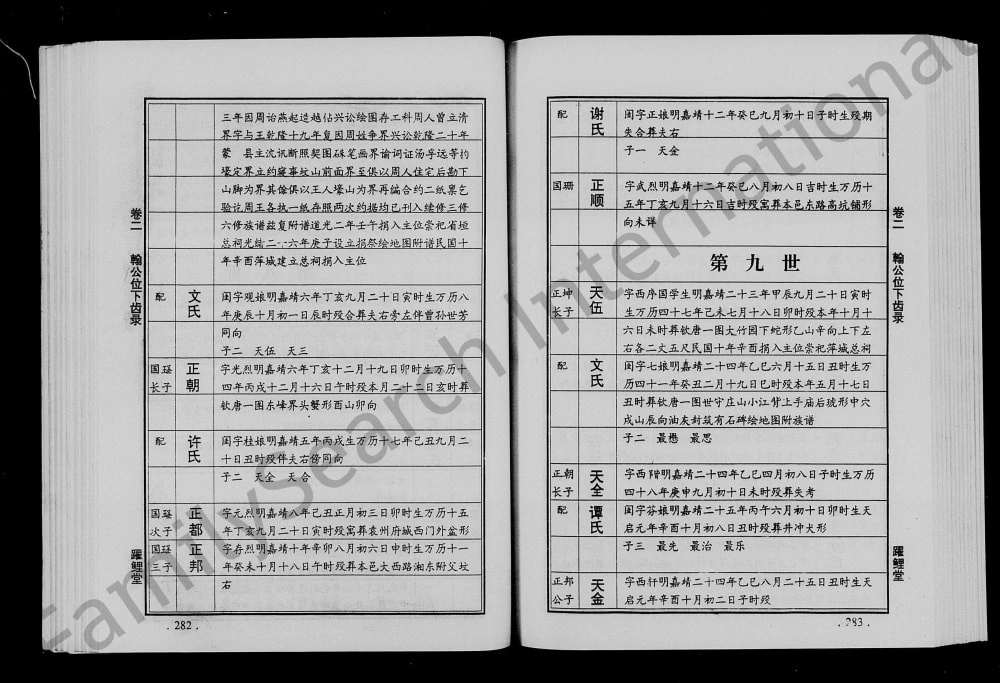 卷二 翰公位下齿录
躍鲤堂
三年因周诒燕起造越佔兴讼绘图存工科周人曾立清
界字与王乾隆十九年复因周姓争界兴讼乾隆二十年
蒙 县主沈讯断照契图砵笔画界谕词证汤孚远等扚
壕定界立约寝事坟山前面界至俱以周人住宅后勘下
山脚为界其馀俱以王人壕山为界再编合约二纸禀乞
验讫周王各执一纸存照两次约据均已刊入续修三修
六修族谱兹复附谱道光二年壬午捐入主位崇祀省垣
总祠光绪二十六年庚子设立捐祭绘地图附谱民国十
年辛酉萍城建立总祠捐入主位
配 文氏 闺字观娘明嘉靖六年丁亥九月二十日寅时生万历八
年庚辰十月初一日辰时殁合葬夫右旁左伴曾孙世芳
同向
子二 天伍 天三
国瑶长子 正朝 字光烈明嘉靖六年丁亥十二月十九日卯时生万历十
四年丙戌十二月十六日午时殁本月二十二日亥时葬
钦唐一图东峰界头蟹形酉山卯向
配 许氏 闺字桂娘明嘉靖五年丙戌生万历十七年己丑九月二
十日丑时殁伴夫右傍同向
子二 天全 天合
国瑶次子 正都 字元烈明嘉靖八年己丑正月初三日卯时生万历十五
年丁亥九月二十日寅时殁窝葬袁州府城西门外盆形
国瑶三子 正邦 字存烈明嘉靖十年辛卯八月初六日申时生万历十一
年癸未十月十八日午时殁葬本邑大西路湘东附父坟
右
· 282 ·
配 谢氏 闺字正娘明嘉靖十二年癸巳九月初十日子时生殁期
失合葬夫右
子一 天全
国珊 正顺 字武烈明嘉靖十二年癸巳八月初八日吉时生万历十
五年丁亥九月十六日吉时殁窝葬本邑东路高坑铺形
向未详
第九世
正坤长子 天伍 字西序国学生明嘉靖二十三年甲辰九月二十日寅时
生万历四十七年己未七月十八日卯时殁本年十月十
六日未时葬钦唐一图大竹园下蛇形乙山辛向上下左
右各二丈五尺民国十年辛酉捐入主位崇祀萍城总祠
配 文氏 闺字七娘明嘉靖二十四年乙巳六月十五日丑时生万
历四十一年癸丑二月十九日巳时殁本年五月十七日
丑时葬钦唐一图世守庄山小江背上手庙后琥形中穴
戍山辰向油灰封筑有石碑绘地图附族谱
子二 最懋 最思
正朝长子 天全 字西階明嘉靖二十四年乙巳四月初八日子时生万历
四十八年庚申九月初十日未时殁葬失考
配 谭氏 闺字芬娘明嘉靖二十五年丙午六月初十日卯时生天
启元年辛酉十月初八日丑时殁葬井冲犬形
子三 最先 最治 最乐
正邦公子 天金 字西轩明嘉靖二十四年乙巳八月二十五日丑时生天
启元年辛酉十月初二日子时殁
· 283 ·
卷二 翰公位下齿录
躍鲤堂
FamilySearch International